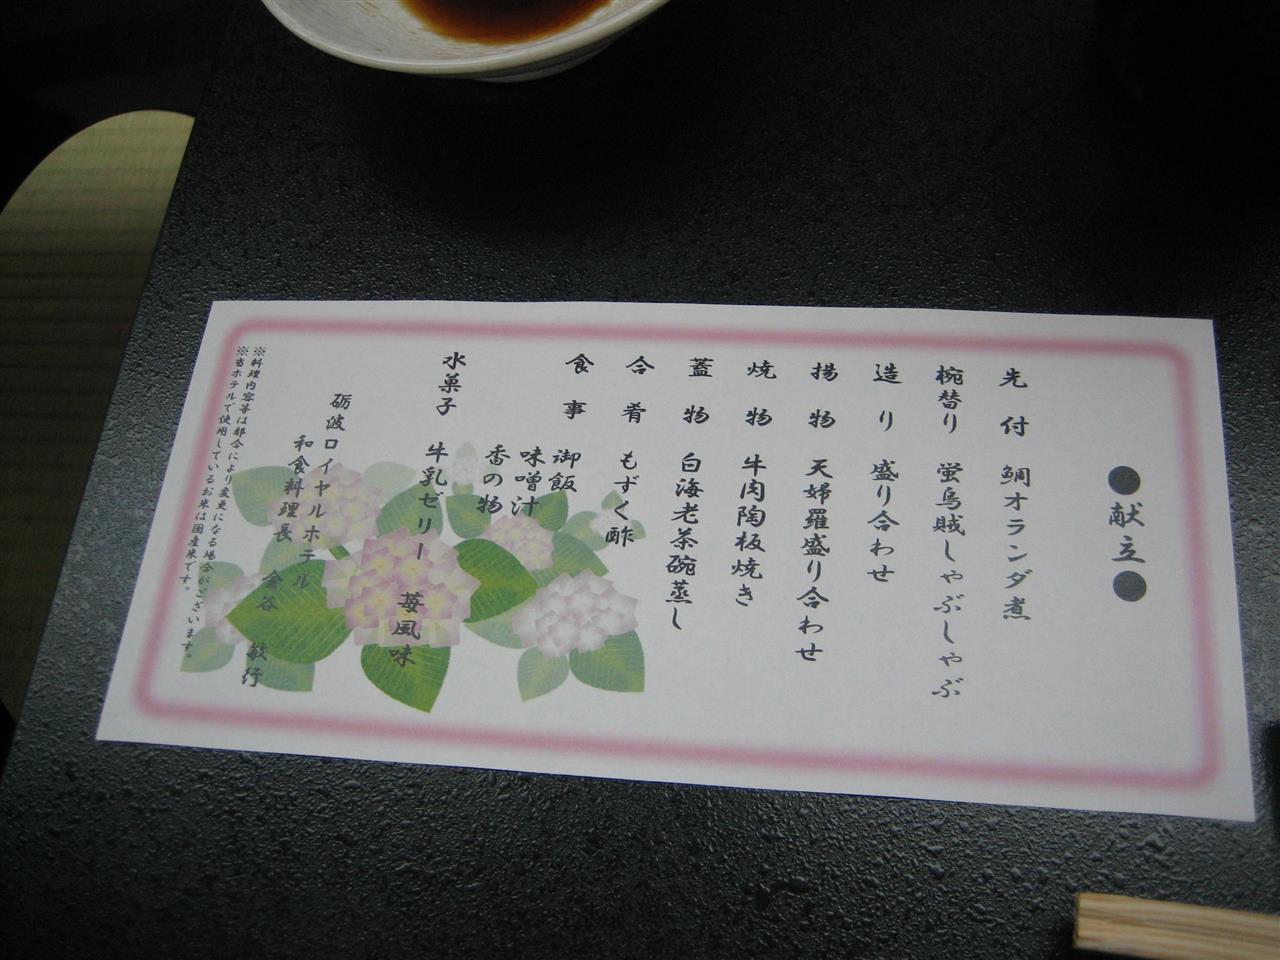 ●献立●
先付 鯛オランダ煮
椀替り 蛍烏賊しゃぶしゃぶ
造り 盛り合わせ
揚物 天婦羅盛り合わせ
焼物 牛肉陶板焼き
蓋物 白海老茶碗蒸し
合肴 もずく酢
食事 御飯
味噌汁
香の物
水菓子 牛乳ゼリー 苺風味
砺波ロイヤルホテル
和食料理長 金谷 敏行
※料理内容等は都合により変更になる場合がございます。
※当ホテルで使用しているお米は国産米です。